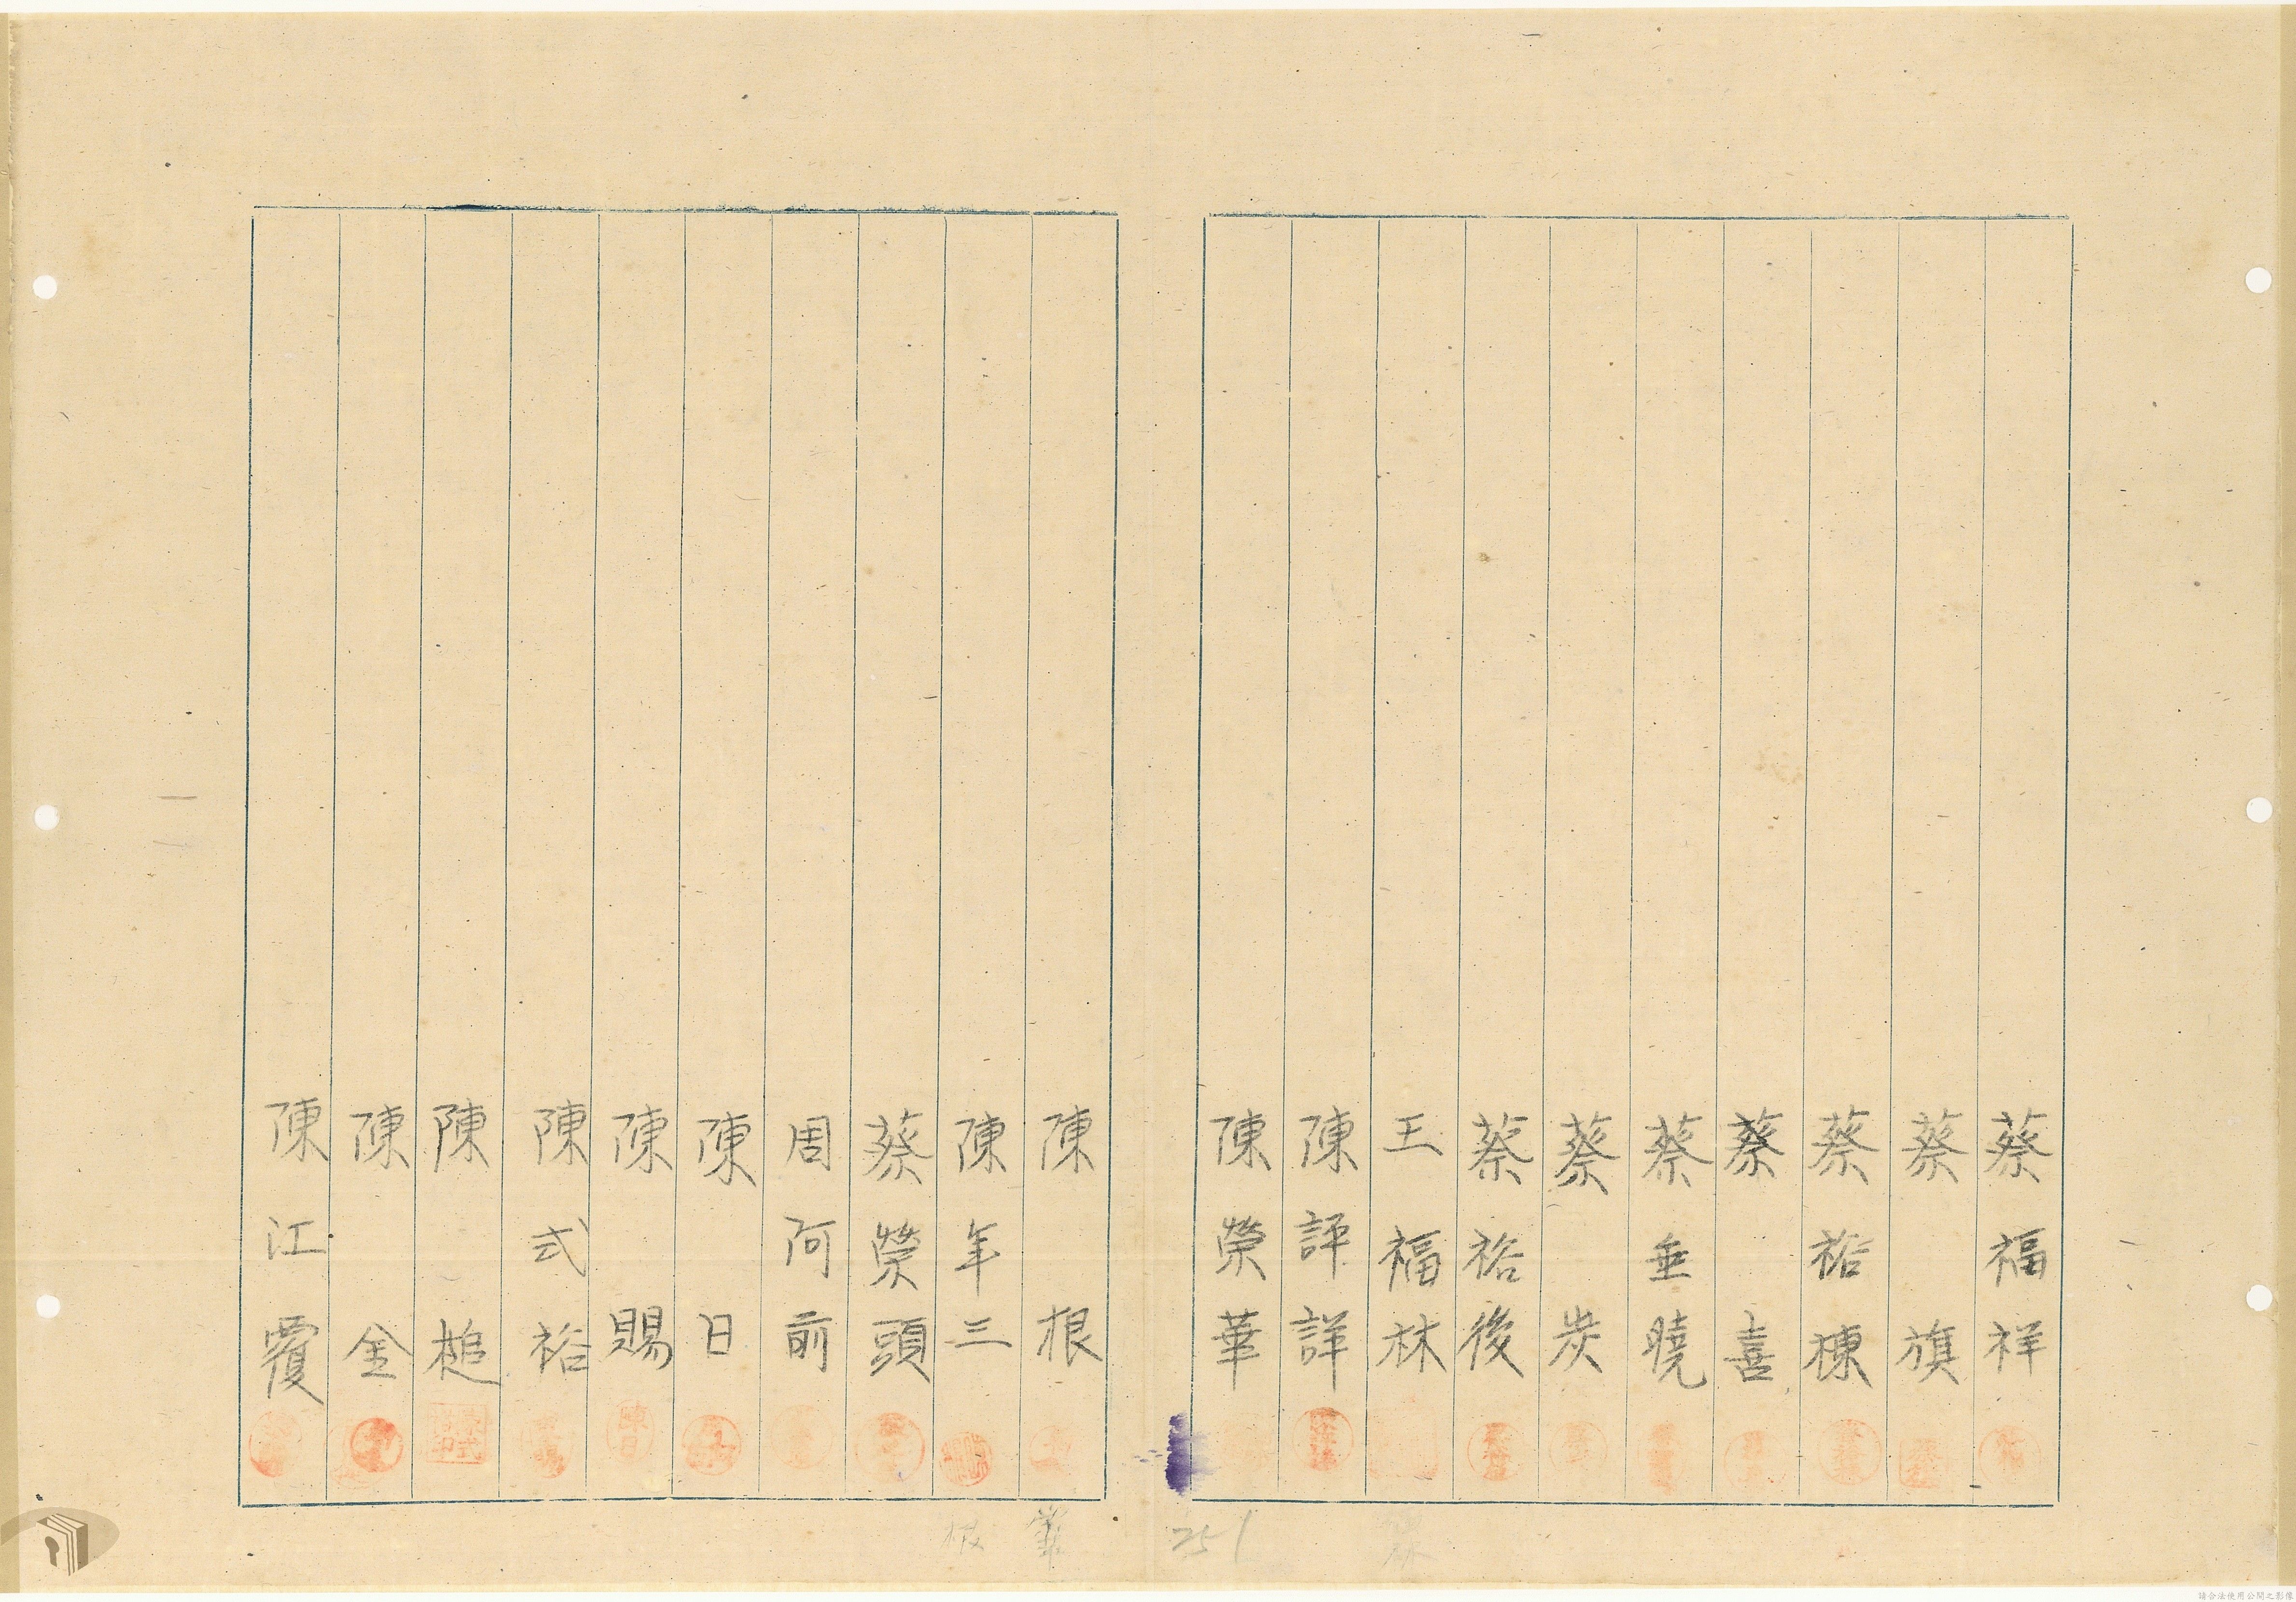 蔡福祥
蔡旗
蔡裕棟
蔡喜
蔡垂曉
蔡炭
蔡裕後
王福林
陳評詳
陳榮華
陳根
陳年三
蔡榮頭
周阿前
陳日
陳賜
陳式裕
陳槌
陳金
陳江覆
251
根
請合法使用公開之影像